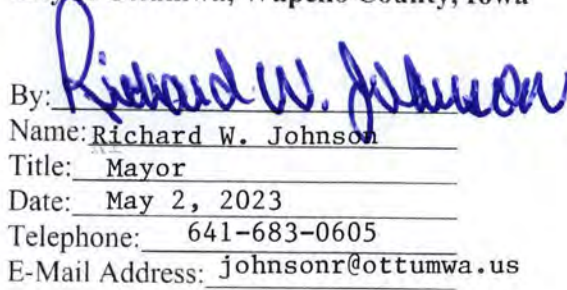 Wapello County, Iowa
By: Richard W. Johnson
Name: Richard W. Johnson
Title: Mayor
Date: May 2, 2023
Telephone: 641-683-0605
E-Mail Address: johnsonr@ottumwa.us